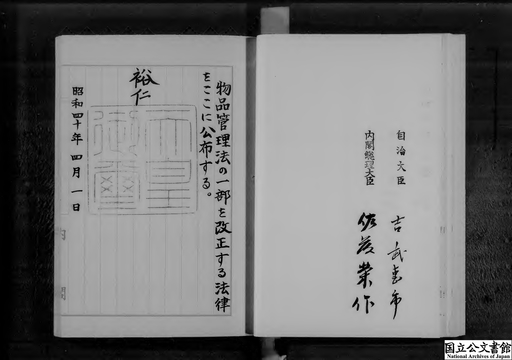 自治大臣 吉武恵市
内閣総理大臣 佐藤栄作
物品管理法の一部を改正する法律
をここに公布する。
裕仁
天皇
御璽
昭和四十年四月一日
国立公文書館
National Archives of Japan